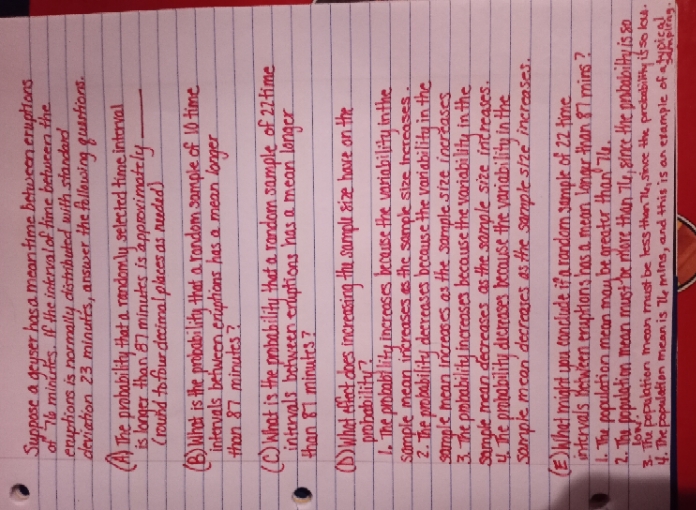 Suppose a geyser has a mean time between eruptions
of 76 minutes. If the interval of time between the
eruptions is normally distributed with standard
deviation 23 minutes, answer the following questions.
(A) The probability that a randomly selected time interval
is longer than 87 minutes is approximately ____
(round to four decimal places as needed)
(B) What is the probability that a random sample of 10 time
intervals between eruptions has a mean longer
than 87 minutes?
(C) What is the probability that a random sample of 22 time
intervals between eruptions has a mean longer
than 87 minutes?
(D) What effect does increasing the sample size have on the
probability?
1. The probability increases because the variability in the
sample mean increases as the sample size increases.
2. The probability decreases because the variability in the
sample mean increases as the sample size increases
3. The probability increases because the variability in the
sample mean decreases as the sample size increases.
4. The probability decreases because the variability in the
sample mean decreases as the sample size increases.
(E) What might you conclude if a random sample of 22 time
intervals between eruptions has a mean longer than 87 mins?
1. The population mean may be greater than 76.
2. The population mean must be more than 76, since the probability is so
low.
3. The population mean must be less than 76, since the probability is so low.
4. The population mean is 76 mins, and this is an example of a typical
sampling.